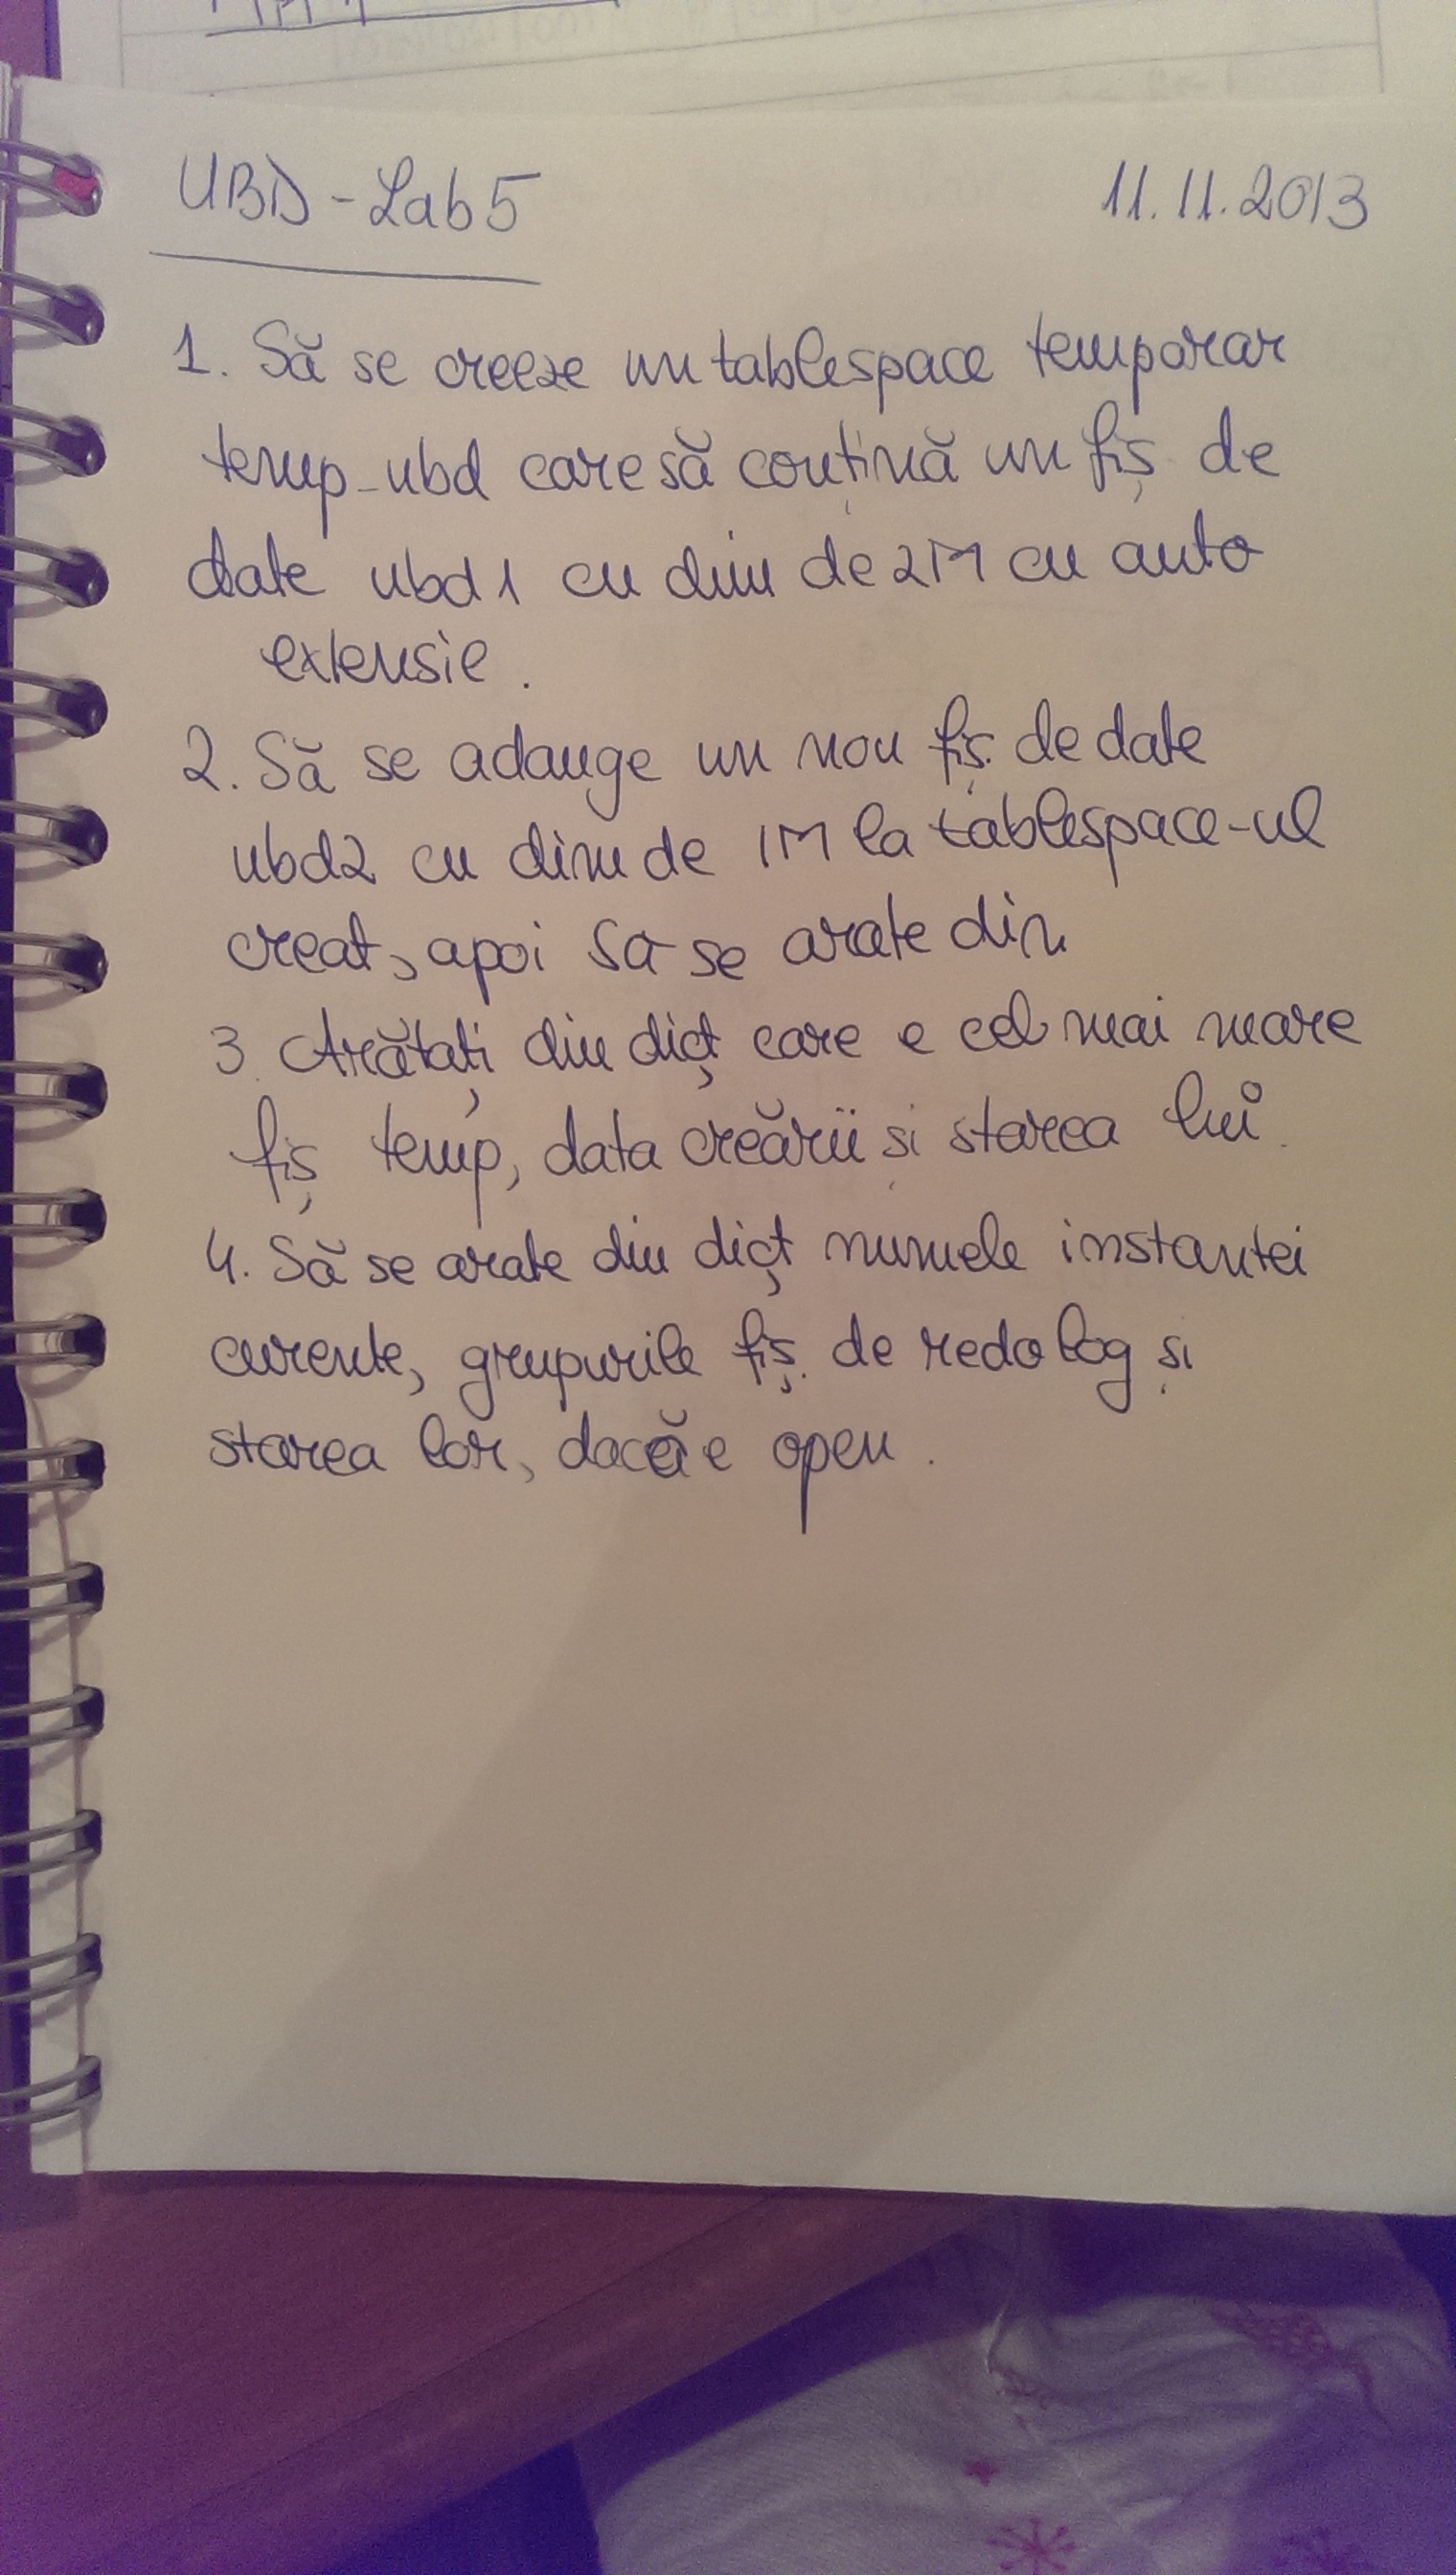 UBD - Lab 5 11.11.2013
1. Să se creeze un tablespace temporar
temp_ubd care să conțină un fiș de
date ubd1 cu dim de 2M cu auto
extensie.
2. Să se adauge un nou fiș. de date
ubd2 cu dim de 1M la tablespace-ul
creat, apoi sa se arate din
3. Arătați din dicț care e cel mai mare
fiș temp, data creării și starea lui.
4. Să se arate din dicț numele instantei
curente, grupurile fiș. de redo log și
starea lor, dacă e open.